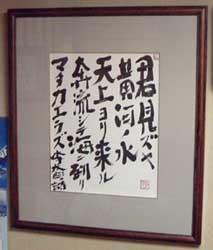 君見ズヤ
黄河ノ水
天上ヨリ来ル
奔流シテ海ニ到リ
マタカエラズ